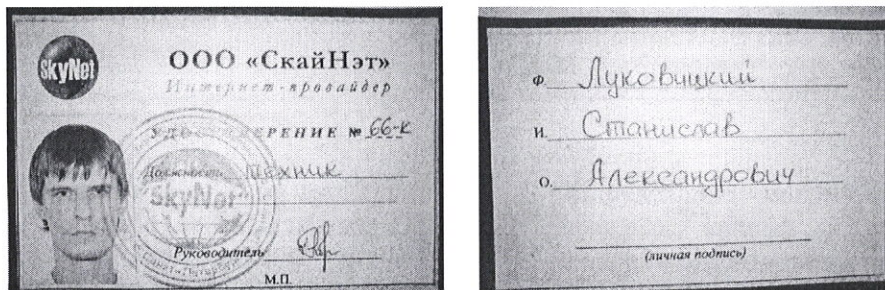 SkyNet
ООО «СкайНэт»
Интернет-провайдер
УДОСТОВЕРЕНИЕ № 66-К
Должность техник
SkyNet
Руководитель
Санкт-Петербург
М.П.
Ф. Луковицкий
И. Станислав
О. Александрович
(личная подпись)